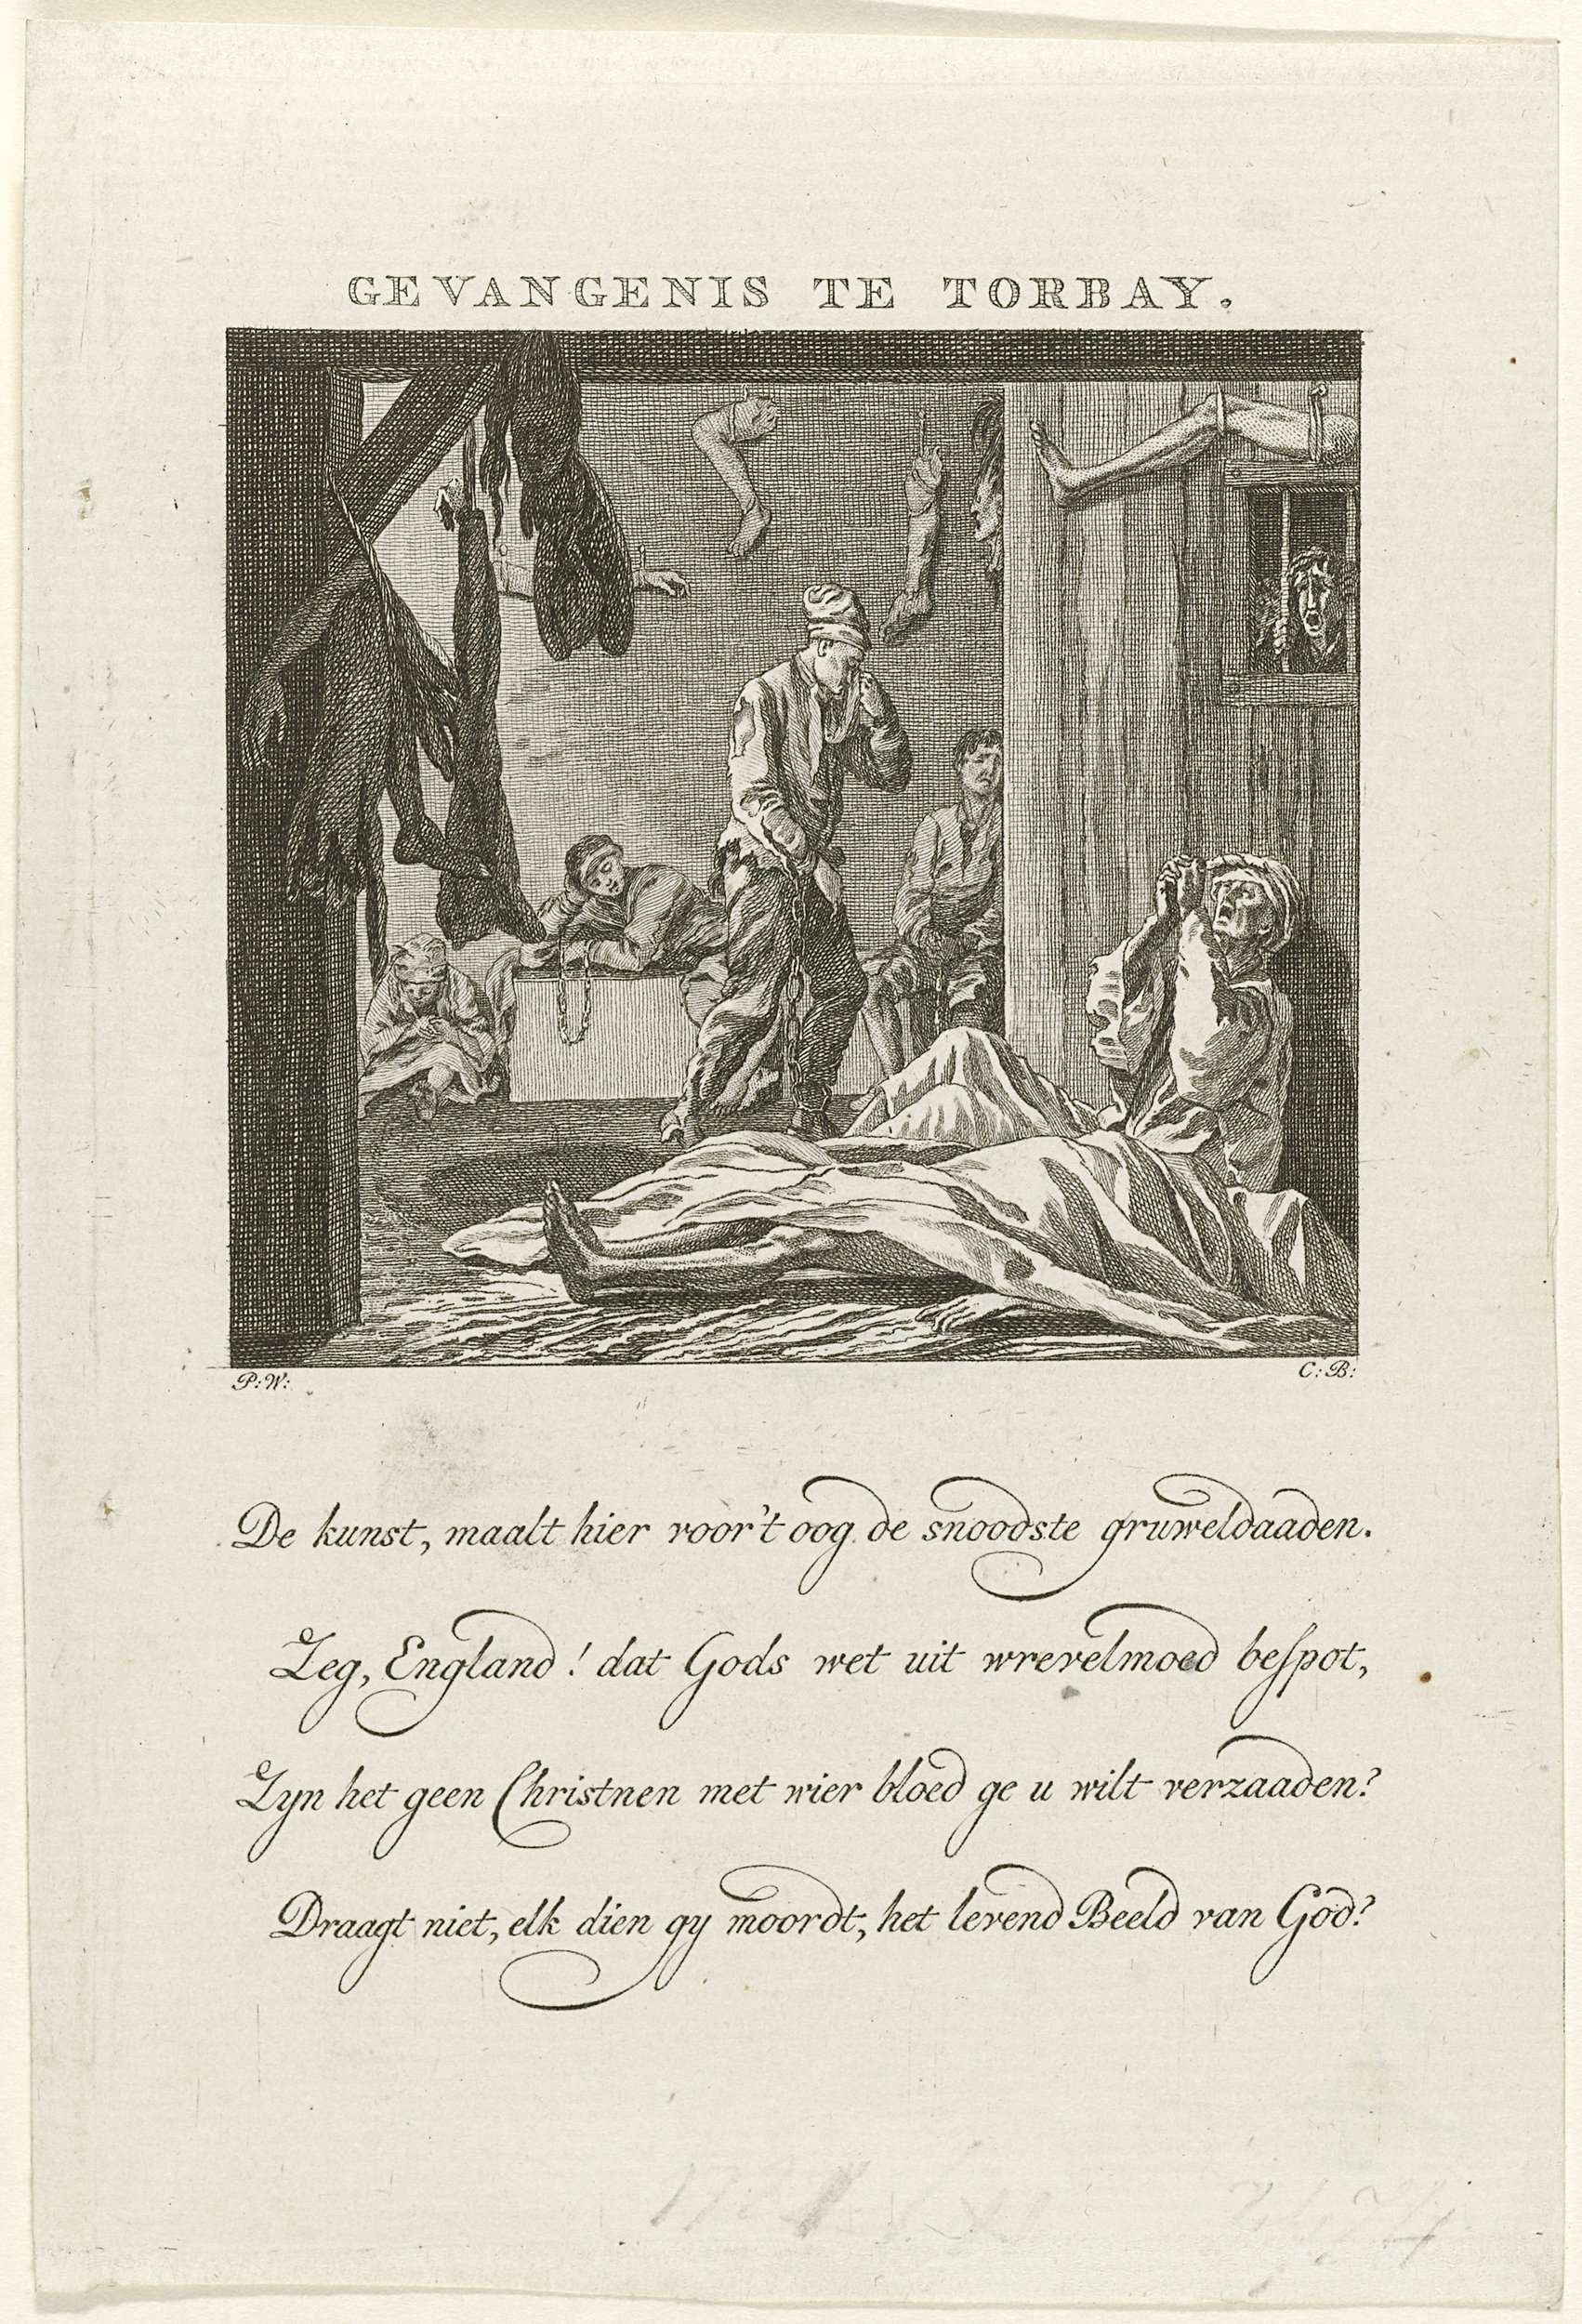 GEVANGENIS TE TORBAY.
P: W:
C: B:
De kunst, maalt hier voor't oog de snoodste gruweldaaden.
Zeg, England! dat Gods wet uit wrevelmoed beſpot,
Zyn het geen Christnen met wier bloed ge u wilt verzaaden?
Draagt niet, elk dien gy moordt, het levend Beeld van God?